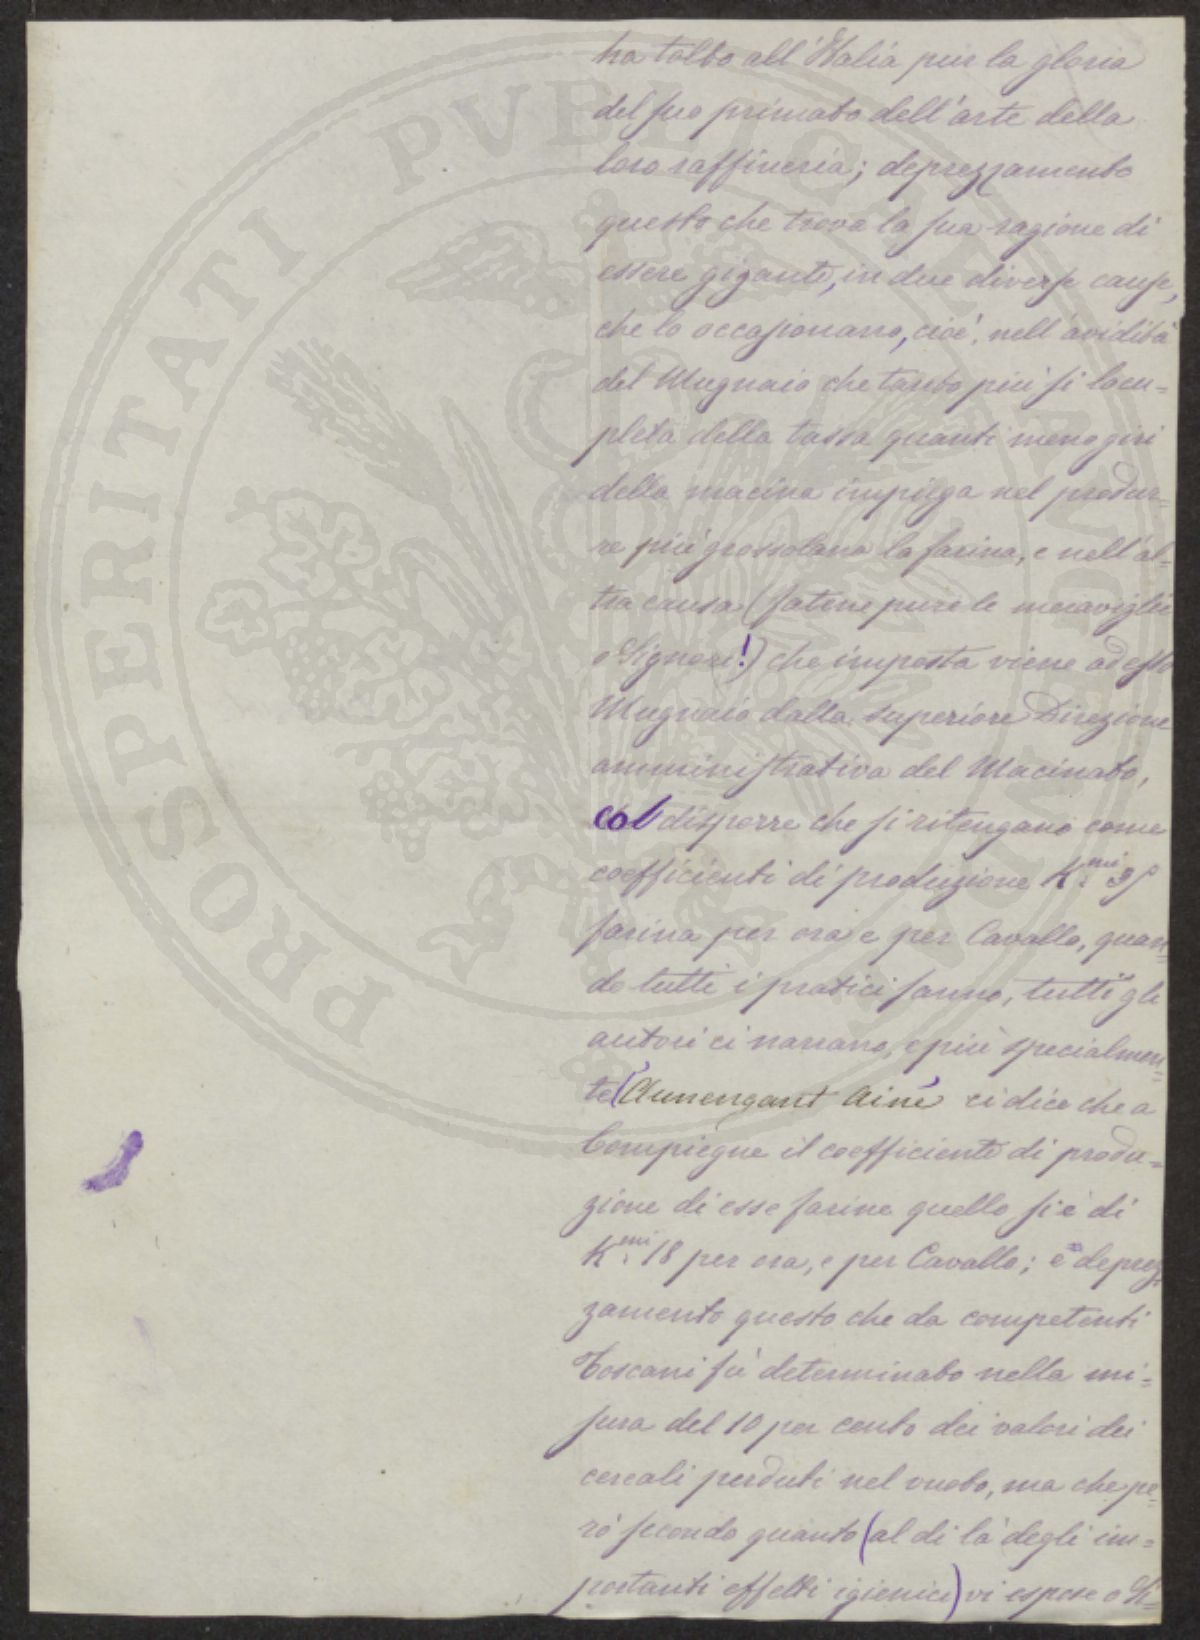 ha tolto all'Italia pur la gloria
del suo primato dell'arte della
loro raffineria; deprezzamento
questo che trova la sua ragione di
essere gigante, in due diverse cause,
che lo occasionano, cioè, nell'avidità
del Mugnaio che tanto più si locu=
pleta della tassa quanti meno giri
della macina impiega nel produr=
re più grossolana la farina, e nell'al=
tra causa (fatene pure le meraviglie
o Signori!) che imposta viene ad esso
Mugnaio dalla superiore Direzione
amministrativa del Macinato,
col disporre che si ritengano come
coefficienti di produzione K.mi
farina per ora e per Cavallo, quan=
do tutti i pratici sanno, tutti gli
autori ci narrano, e più specialmen=
te (Aunengant Ainé) ci dice che a
Compiegne il coefficiente di produ=
zione di esse farine quello si è di
K.mi 18 per ora, e per Cavallo; e deprez
zamento questo che da competenti
Toscani fù determinato nella mi=
sura del 10 per cento dei valori dei
cereali perduti nel vuoto, ma che pe=
rò secondo quanto (al di là degli im=
portanti effetti igienici) vi espose o Si=
PROSPERITATI PVBLICAE